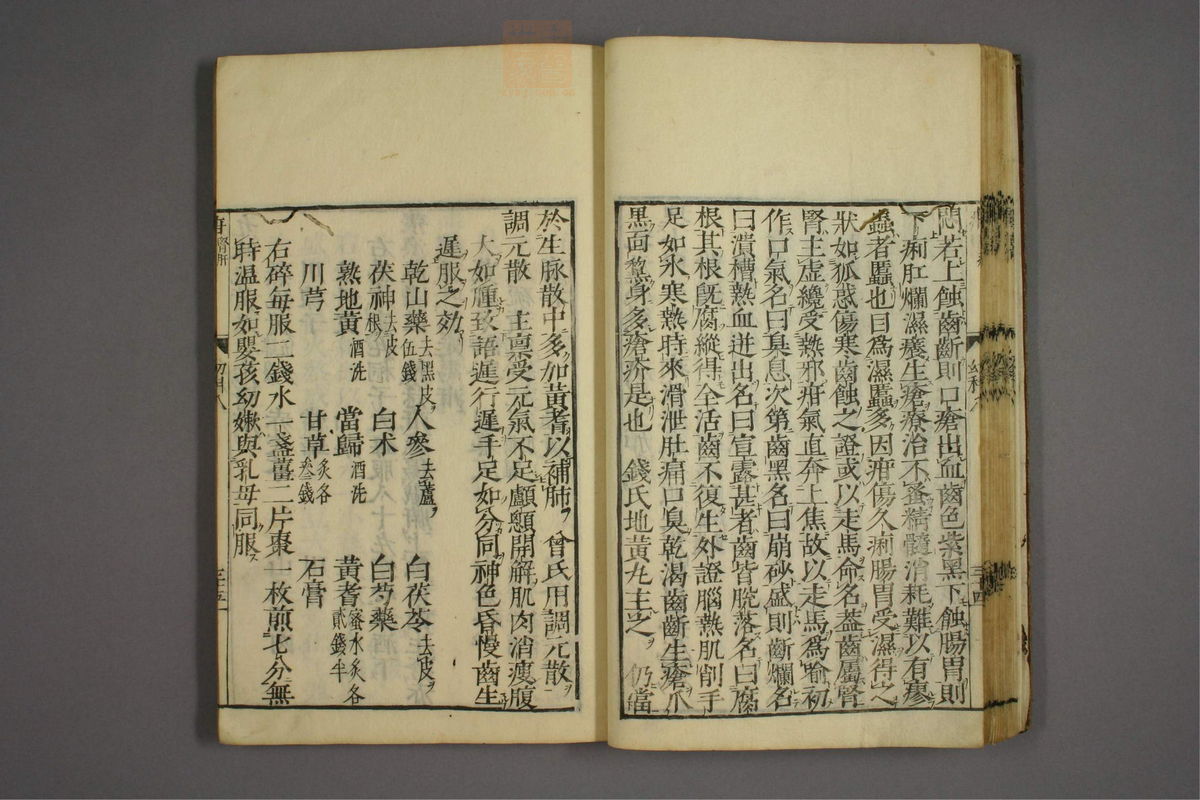 悶若上蝕齒齗則口瘡出血齒色紫黑下蝕腸胃則
下痢肛爛濕癢生瘡療治不蚤精髓消耗難以有瘳
蟲者䘌也目爲濕䘌多因疳傷久痢腸胃受濕得之
狀如狐惑傷寒齒蝕之證或以走馬命名蓋齒屬腎
腎主虛纔受熱邪疳氣直奔上焦故以走馬爲喻初
作口氣名曰臭息次第齒黑名曰崩砂盛則齗爛名
曰潰槽熱血迸出名曰宣露甚者齒皆脫落名曰腐
根其根旣腐縱得全活齒不復生外證腦熱肌削手
足如氷寒熱時來滑泄肚痛口臭乾渴齒齗生瘡爪
黑面黧身多瘡疥是也 錢氏地黃丸主之 仍當
於生脉散中多加黃耆以補肺 曾氏用調元散
調元散 主禀受元氣不足顱顖開解肌肉消瘦腹
大如腫致語遲行遲手足如分同神色昏慢齒生
遲服之效
乾山藥去黑皮伍錢 人參去蘆 白茯苓去皮
茯神去皮根 白术 白芍藥
熟地黃酒洗 當歸酒洗 黃耆蜜水炙各貳錢半
川芎 甘草炙各叁錢 石膏
右碎每服二錢水一盞薑二片棗一枚煎七分無
時温服如嬰孩幼嫩與乳母同服
幼科八
三十五